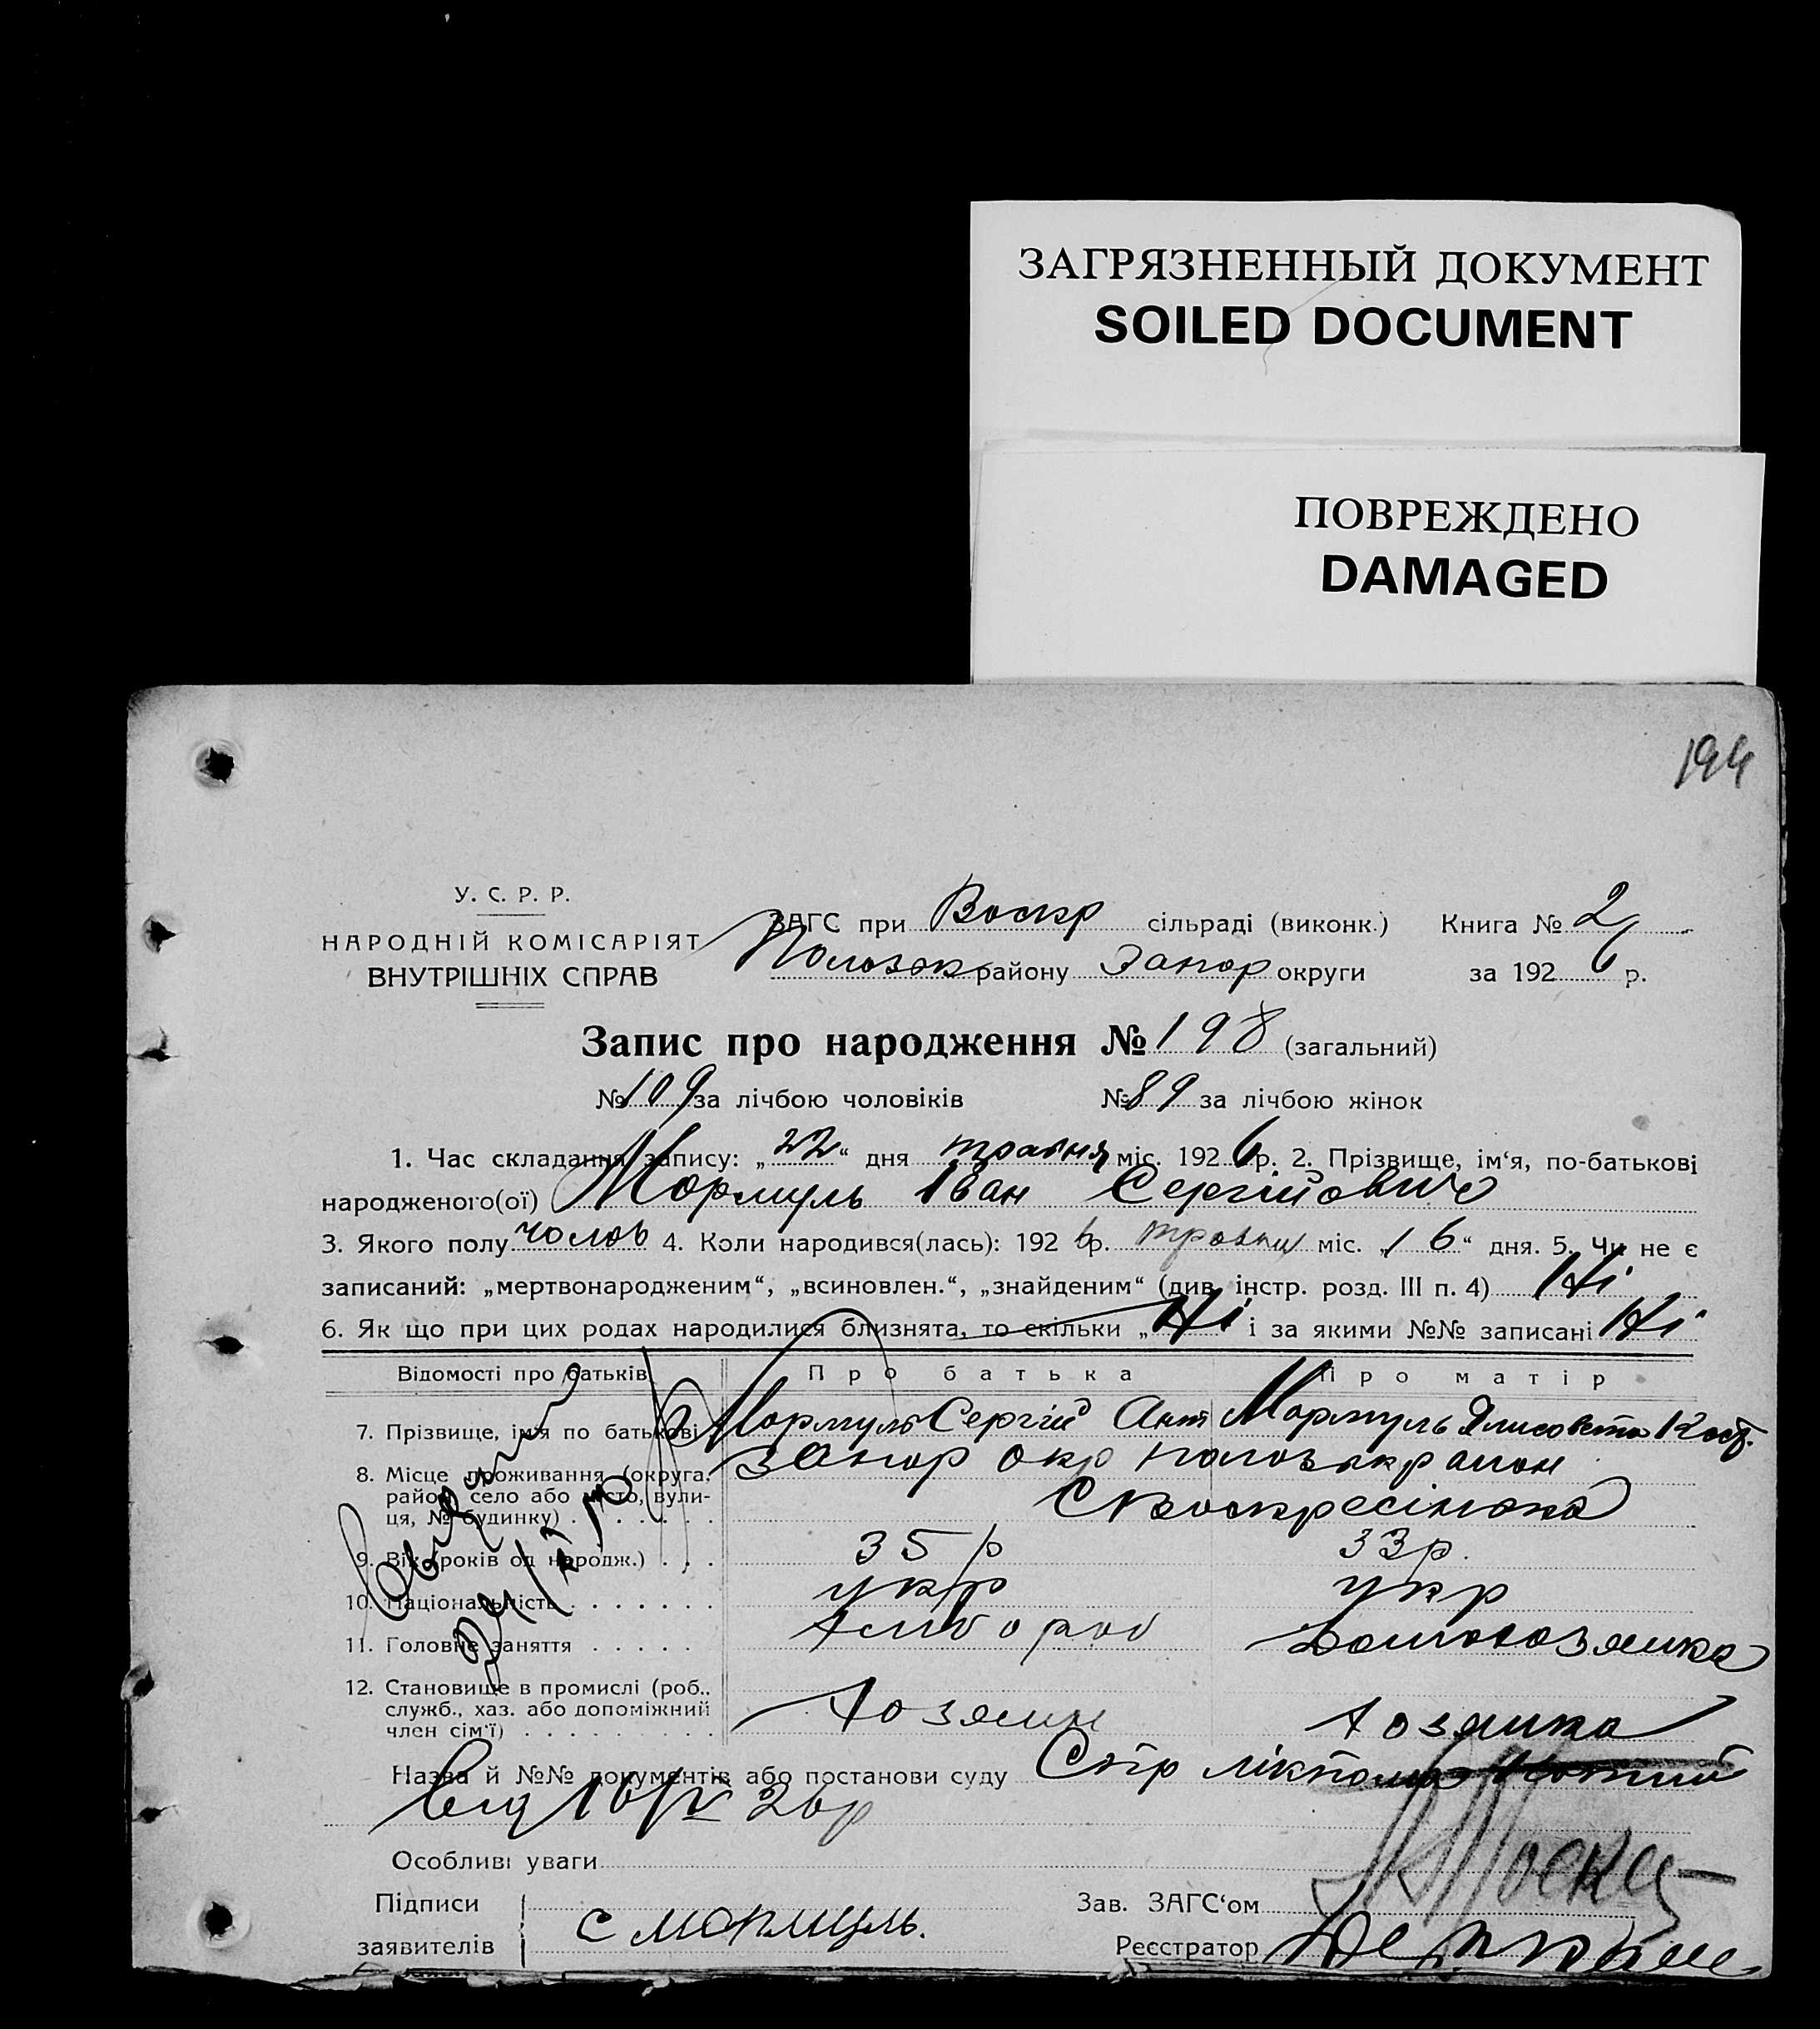 ЗАГРЯЗНЕННЫЙ ДОКУМЕНТ
SOILED DOCUMENT
ПОВРЕЖДЕНО
DAMAGED
194
У. С. Р. Р.
НАРОДНІЙ КОМІСАРІЯТ
ВНУТРІШНІХ СПРАВ
ЗАГС при Воскр сільраді (виконк.) Книга № 2
Пологськ району Запор округи за 1926 р.
Запис про народження № 198 (загальний)
№ 109 за лічбою чоловіків № 89 за лічбою жінок
1. Час складання запису: „22“ дня травня міс. 1926 р. 2. Прізвище, ім‘я, по-батькові
народженого(ої) Мормуль Іван Сергійович
3. Якого полу чолов 4. Коли народився(лась): 1926 р. травня міс. „16“ дня. 5. Чи не є
записаний: „мертвонародженим“, „всиновлен.“, „знайденим“ (див. інстр. розд. III п. 4) Ні
6. Як що при цих родах народилися близнята, то скільки „Ні і за якими №№ записані Ні
Відомості про батьків Про батька Про матір
7. Прізвище, ім‘я по батькові Мормуль Сергій Ант Мормуль Елисовета Кост.
8. Місце проживання (округа, район, село або місто, вули-
ця, № будинку) Запор окр район
9. Вік (років од народж.) 35 р 33 р.
10. Національність укр укр
11. Головне заняття Хлібороб Домохозяйка
12. Становище в промислі (роб.,
служб., хаз. або допоміжний
член сім‘ї) Хозяин хозяйка
Назва й №№ документів або постанови суду
від 16/V 26р
Особливі уваги
Підписи
заявителів С Мормуль.
Зав. ЗАГС‘ом
Реєстратор